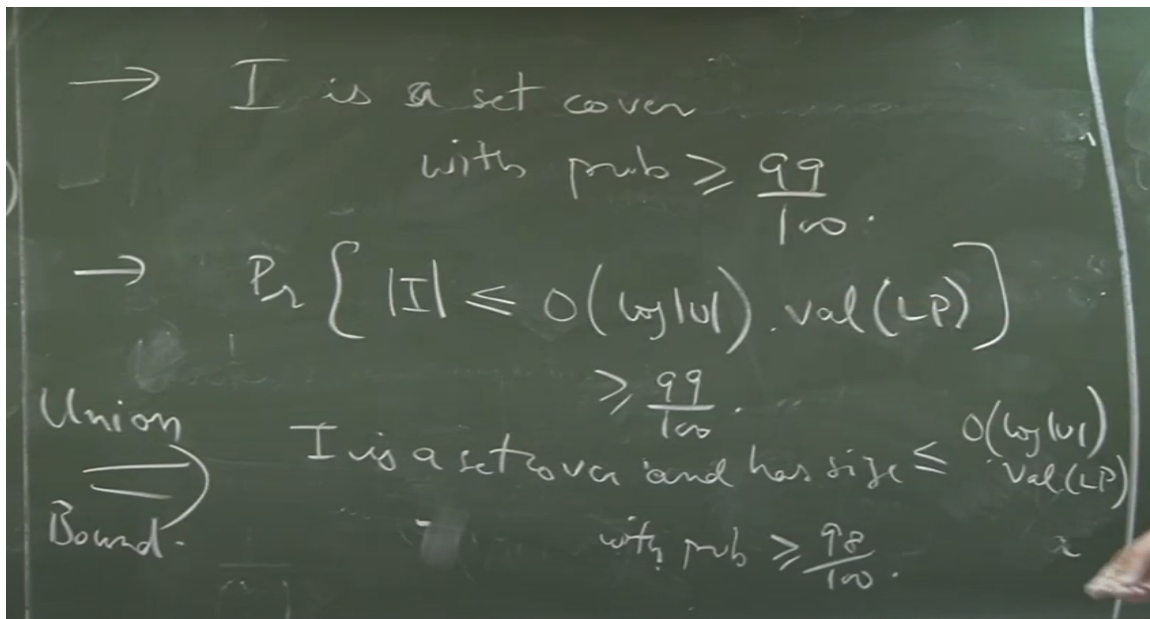 → I is a set cover
with prob ≥ 99/100.
→ Pr { |I| ≤ O(log|U|) . val(LP) ]
≥ 99/100.
Union Bound. ⇒ I is a set cover and has size ≤ O(log|U|) val(LP)
with prob ≥ 98/100.